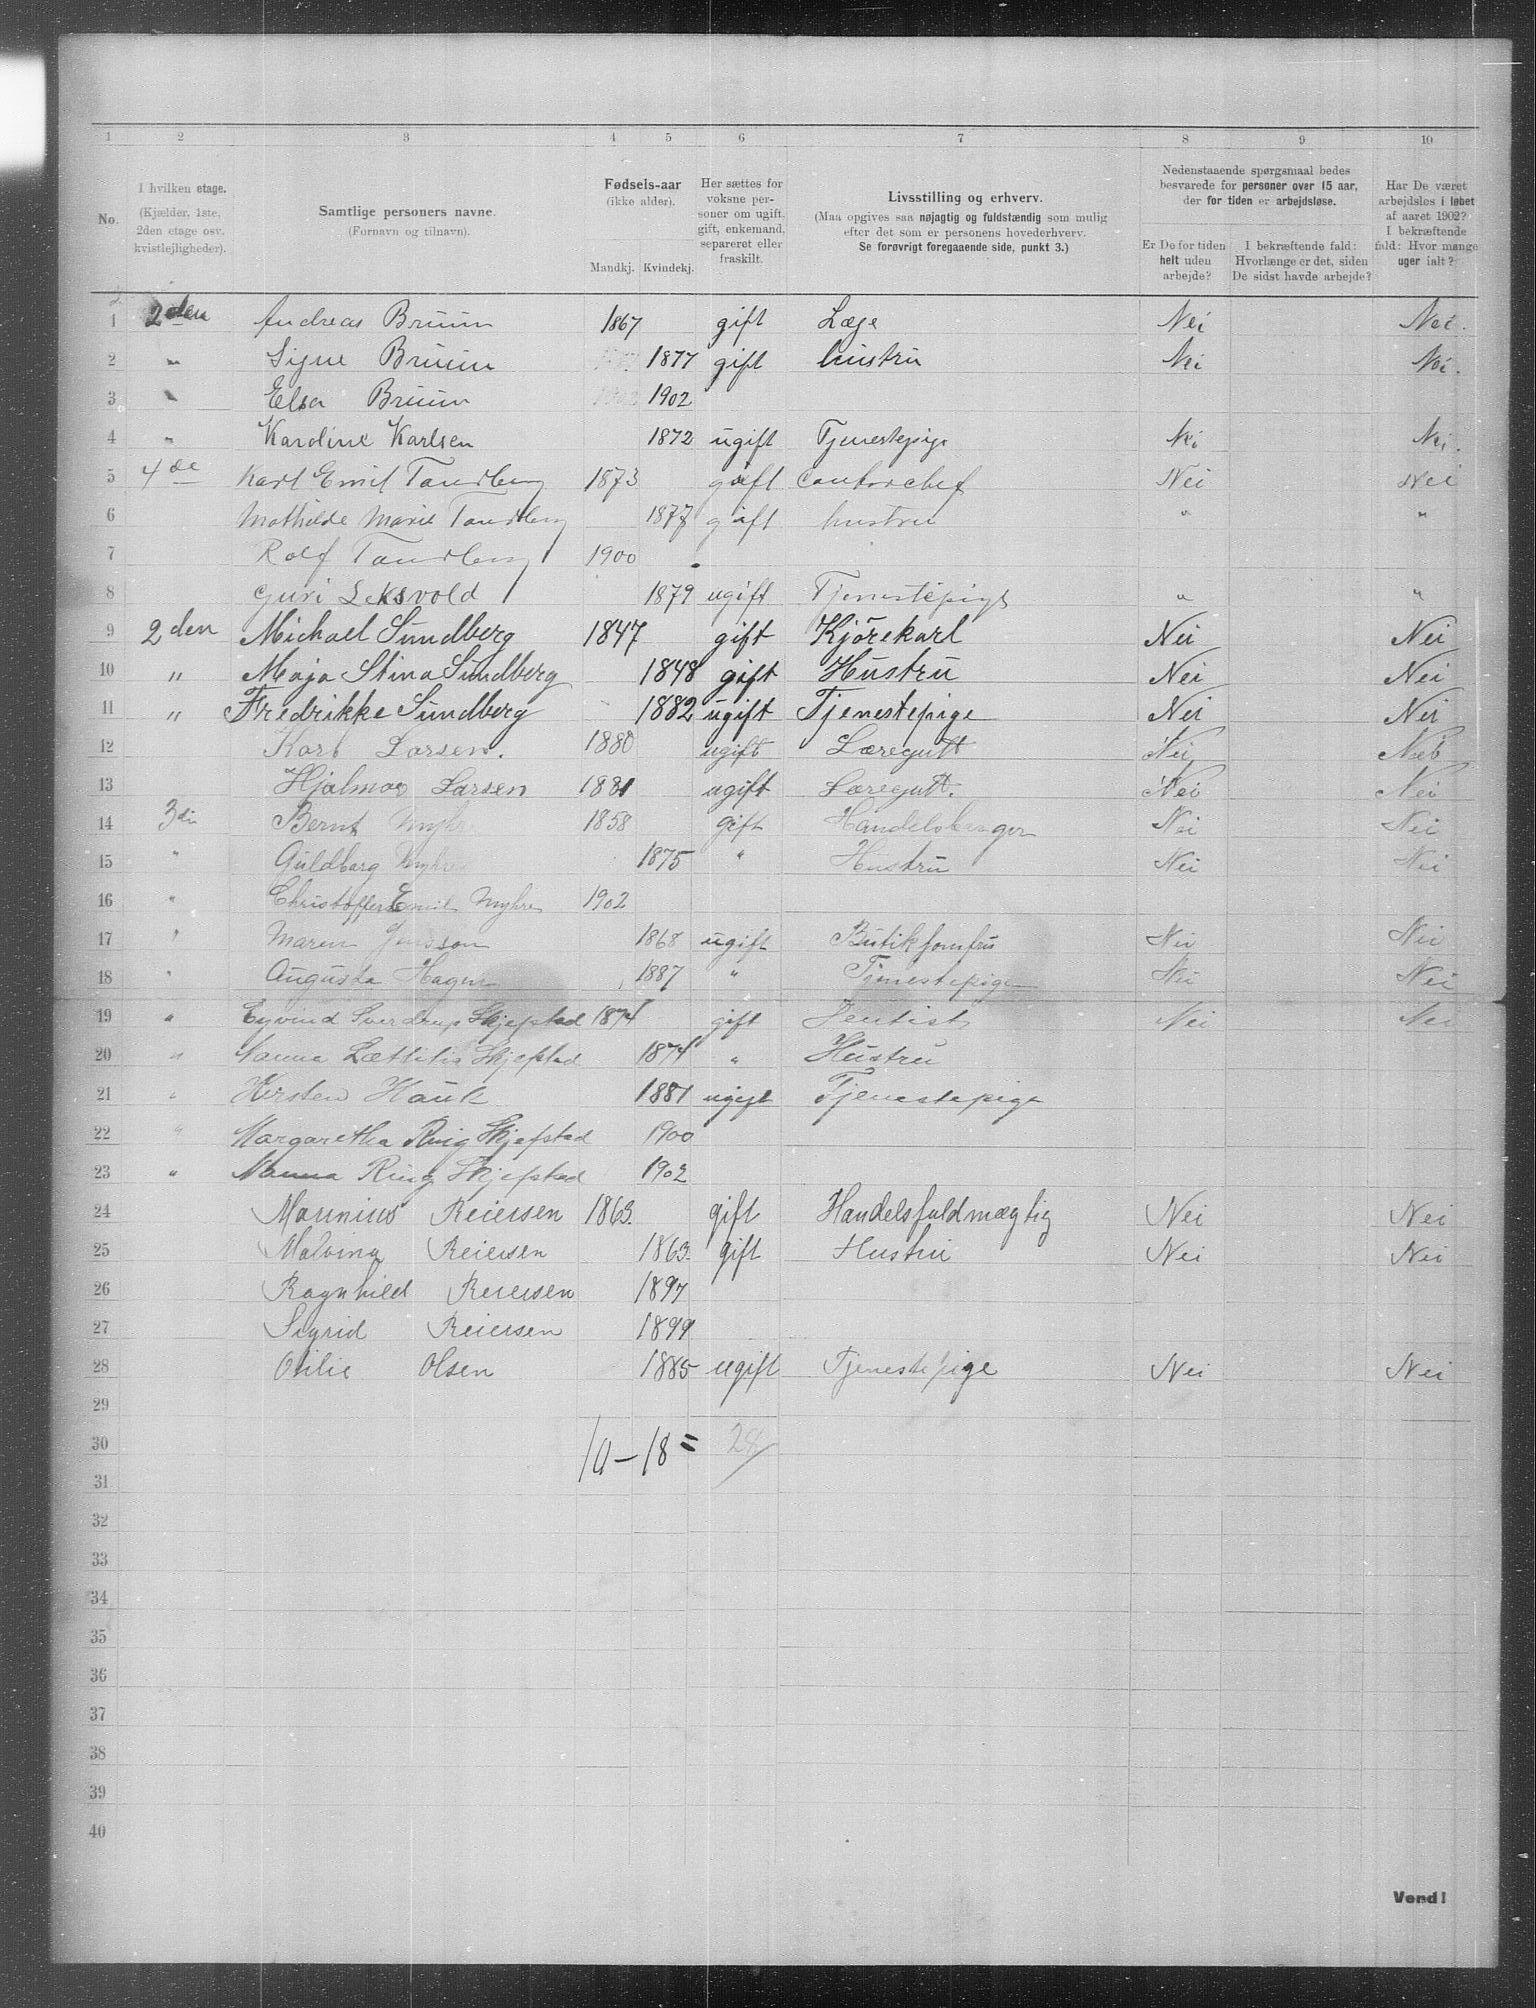 1 2 3 4 5 6 7 8 9 10
No.
I hvilken etage.
(Kjælder, 1ste,
2den etage osv.
kvistlejligheder).
Samtlige personers navne.
(Fornavn og tilnavn).
Fødsels-aar
(ikke alder).
Mandkj. Kvindekj.
Her sættes for
voksne per-
soner om ugift,
gift, enkemand,
separeret eller
fraskilt.
Livsstilling og erhverv.
(Maa opgives saa nøjagtig og fuldstændig som mulig
efter det som er personens hovederhverv.
Se forøvrigt foregaaende side, punkt 3.)
Nedenstaaende spørgsmaal bedes
besvarede for personer over 15 aar,
der for tiden er arbejdsløse.
Er De for tiden
helt uden
arbejde?
I bekræftende fald:
Hvorlænge er det, siden
De sidst havde arbejde?
Har De været
arbejdsløs i løbet
af aaret 1902?
I bekræftende
fald: Hvor mange
uger ialt?
1 2den Andreas Bruun 1867 gift Læge Nei Nei.
2 " Signe Bruun 1877 gift hustru Nei Nei.
3 " Elsa Bruun 1902
4 " Karoline Karlsen 1872 ugift Tjenestepige Nei Nei.
5 4de Karl Emil Tandberg 1873 gift Contorchef Nei Nei
6 Mathilde Marie Tandberg 1877 gift hustru " "
7 Rolf Tandberg 1900
8 Guri Leksvold 1879 ugift Tjenestepige " "
9 2den Michael Sundberg 1847 gift Kjörekarl Nei Nei
10 " Maja Stina Sundberg 1848 gift Hustru Nei Nei
11 " Fredrikke Sundberg 1882 ugift Tjenestepige Nei Nei
12 Karl Larsen. 1880 ugift Læregutt Nei Nei
13 Hjalmar Larsen 1881 ugift Læregutt. Nei Nei
14 3di Bernt Myhre 1858 gift Handelsborger Nei Nei
15 " Guldborg Myhre 1875 " Hustru Nei Nei
16 " Christoffer Emil Myhre 1902
17 " Maren Jensson 1868 ugift Butikjomfru Nei Nei
18 " Augusta Hagen 1887 " Tjenestepige Nei Nei
19 " Eyvind Sverdrup Skjefstad 1874 gift Dentist Nei Nei
20 " Nanna Lættitia Skjefstad 1874 " Hustru
21 " Kirsten Hauk 1881 ugift Tjenestepige
22 " Margaretha Ring Skjefstad 1900
23 " Nanna Ring Skjefstad 1902
24 Maunius Reiersen 1863. gift Handelsfuldmægtig Nei Nei
25 Malvina Reiersen 1863. gift Hustru Nei Nei
26 Ragnhild Reiersen 1897
27 Sigrid Reiersen 1899
28 Otilie Olsen 1885 ugift Tjenestepige Nei Nei
29
30 10-18= 28
31
32
33
34
35
36
37
38
39
40
Vend!